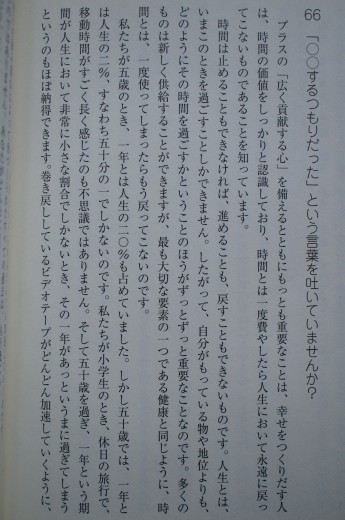 66 「○○するつもりだった」という言葉を吐いていませんか？
プラスの「広く貢献する心」を備えるとともにもっとも重要なことは、幸せをつくりだす人
は、時間の価値をしっかりと認識しており、時間とは一度費やしたら人生において永遠に戻っ
てこないものであることを知っています。
時間は止めることもできなければ、進めることも、戻すこともできないものです。人生とは、
いまこのときを過ごすことしかできません。したがって、自分がもっている物や地位よりも、
どのようにその時間を過ごすかということのほうがずっとずっと重要なことなのです。多くの
ものは新しく供給することができますが、最も大切な要素の一つである健康と同じように、時
間とは、一度使ってしまったらもう戻ってこないのです。
私たちが五歳のとき、一年とは人生の二〇％も占めていました。しかし五十歳では、一年と
は人生の二％、すなわち五十分の一でしかないのです。私たちが小学生のとき、休日の旅行で、
移動時間がすごく長く感じたのも不思議ではありません。そして五十歳を過ぎ、一年という期
間が人生において非常に小さな割合でしかないとき、その一年があっというまに過ぎてしまう
というのもほぼ納得できます。巻き戻ししているビデオテープがどんどん加速していくように、